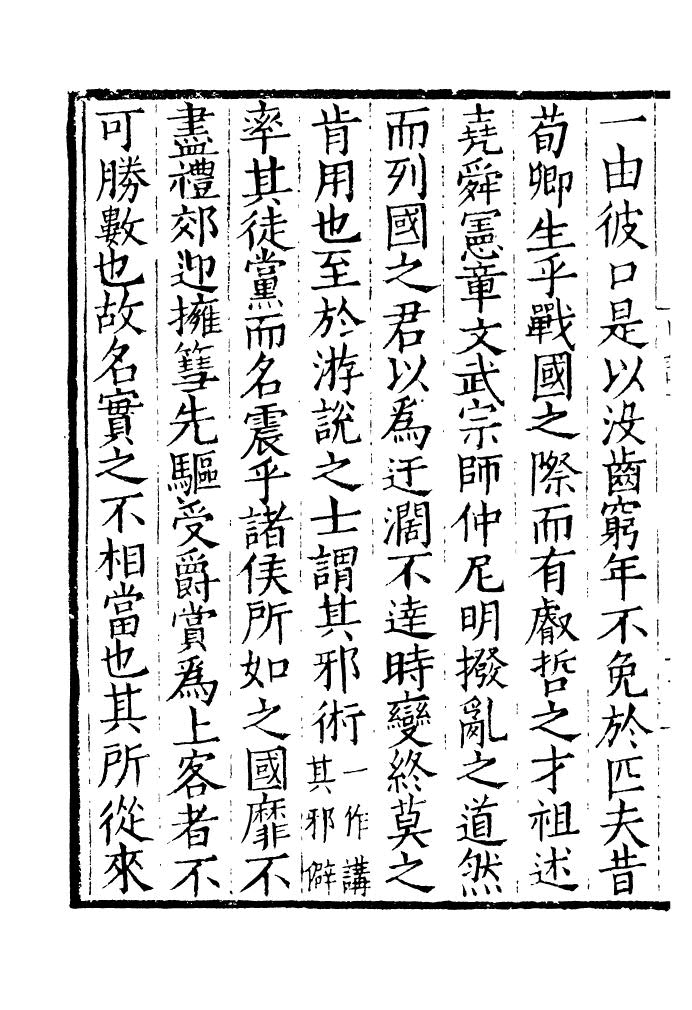 一由彼口是以没齒窮年不免於匹夫昔
荀卿生乎戰國之際而有叡哲之才祖述
堯舜憲章文武宗師仲尼明撥亂之道然
而列國之君以為迂濶不達時變終莫之
肯用也至於游說之士謂其邪術一作講其邪僻
率其徒黨而名震乎諸侯所如之國靡不
盡禮郊迎擁篲先驅受爵賞為上客者不
可勝數也故名實之不相當也其所從來